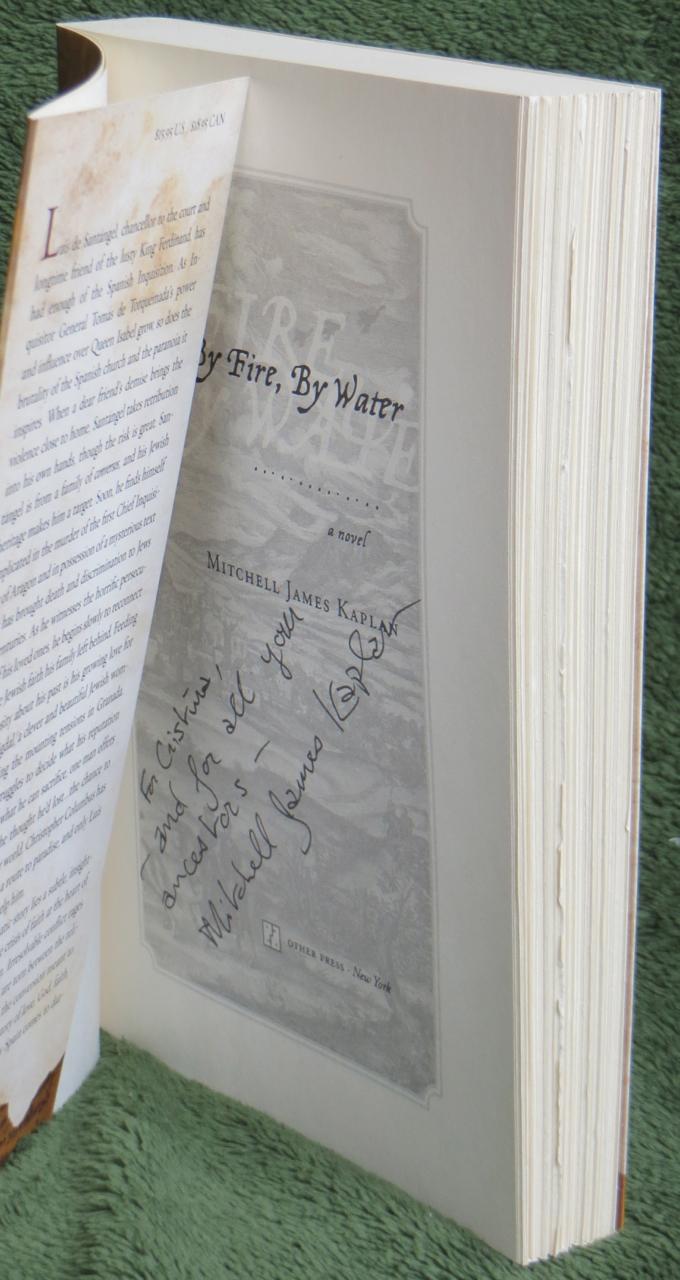 $15.95 U.S. / $18.95 CAN
Luis de Santángel, chancellor to the court and
longtime friend of the lusty King Ferdinand, has
had enough of the Spanish Inquisition. As In-
quisitor General Tomas de Torquemada's power
and influence over Queen Isabel grow, so does the
brutality of the Spanish church and the paranoia it
inspires. When a dear friend's demise brings the
violence close to home, Santángel takes retribution
into his own hands, though the risk is great. San-
tángel is from a family of conversos, and his Jewish
heritage makes him a target. Soon, he finds himself
implicated in the murder of the first Chief Inquisi-
of Aragon and in possession of a mysterious text
has brought death and discrimination to Jews
centuries. As he witnesses the horrific persecu-
of his loved ones, he begins slowly to reconnect
Jewish faith his family left behind. Feeding
about his past is his growing love for
a clever and beautiful Jewish wom-
the mounting tensions in Granada
struggles to decide what his reputation
what he can sacrifice, one man offers
he thought he'd lost...the chance to
world. Christopher Columbus has
a route to paradise, and only Luis
help him.
story lies a subtle, insight-
crisis of faith at the heart of
Irresolvable conflict rages
are torn between the
the conversion meant to
story of love, God, faith
Spain comes to
FIRE
WATE
By Fire, By Water
a novel
MITCHELL JAMES KAPLAN
For Cristina,
— and for all your
ancestors —
Mitchell James Kaplan
OTHER PRESS · New York